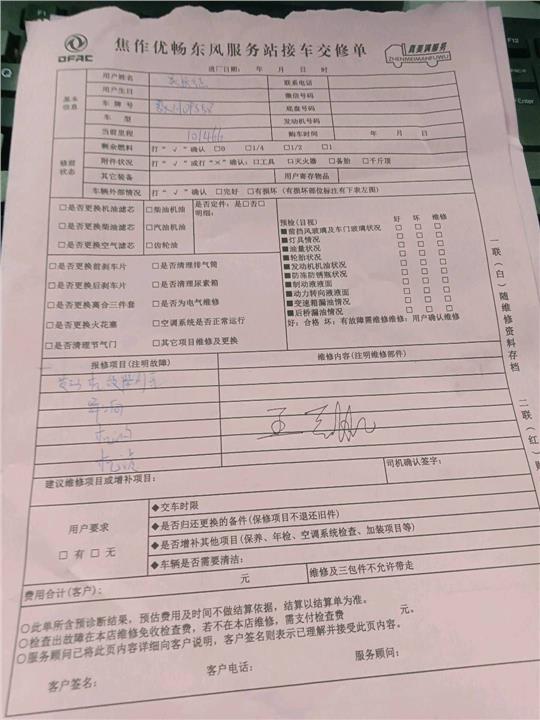 DFAC
焦作优畅东风服务站接车交修单
真美满服务
ZHENMEIMANFUWU
进厂日期: 年 月 日 时
基本信息
用户姓名 联系电话
用户生日 微信号码
车牌号 底盘号码
车型 发动机号码
当前里程 101466 购车时间 年 月 日
修前状态
剩余燃料 打“√”确认 □0 □1/4 □1/2 □1
附件状况 打“√”或打“×”确认: □工具 □灭火器 □备胎 □千斤顶
其它装备 用户寄存物品
车辆外部情况 打“√”确认 □完好 □有损坏 (有损坏部位标注有下表左图)
□是否更换机油滤芯 □柴油机油
□是否更换柴油滤芯 □汽油机油
□是否更换空气滤芯 □齿轮油
是否定件: 是□否□
明细:
□是否更换前刹车片 □是否清理排气筒
□是否更换后刹车片 □是否清理尿素箱
□是否更换离合三件套 □是否为电气维修
□是否更换火花塞 □空调系统是否正常运行
□是否清理节气门 □其它项目维修及更换
预检(目视) 好 坏 维修
■前挡风玻璃及车门玻璃状况 □ □ □
■灯具情况 □ □ □
■油量状况 □ □ □
■轮胎状况 □ □ □
■发动机机油状况 □ □ □
■防冻防锈瓶状况 □ □ □
■制动液液面 □ □ □
■动力转向液液面 □ □ □
■变速箱漏油情况 □ □ □
■后桥漏油情况 □ □ □
好: 合格 坏: 有故障需维修维修: 用户确认维修
报修项目(注明故障) 维修内容(注明维修部件)
建议维修项目或增补项目: 司机确认签字:
用户要求
□有 □无
◆交车时限
◆是否归还更换的备件(保修项目不退还旧件)
◆是否增补其他项目(保养、年检、空调系统检查、加装项目等)
◆车辆是否需要清洁:
费用合计(客户): 元 维修及三包件不允许带走
○此单所含预诊断结果, 预估费用及时间不做结算依据, 结算以结算单为准。
○检查出故障在本店维修免收检查费, 若不在本店维修, 需支付检查费 元。
○服务顾问已将此页内容详细向客户说明, 客户签名则表示已理解并接受此页内容。
客户签名: 客户电话: 服务顾问:
一联(白)随维修资料存档
二联(红)
F12